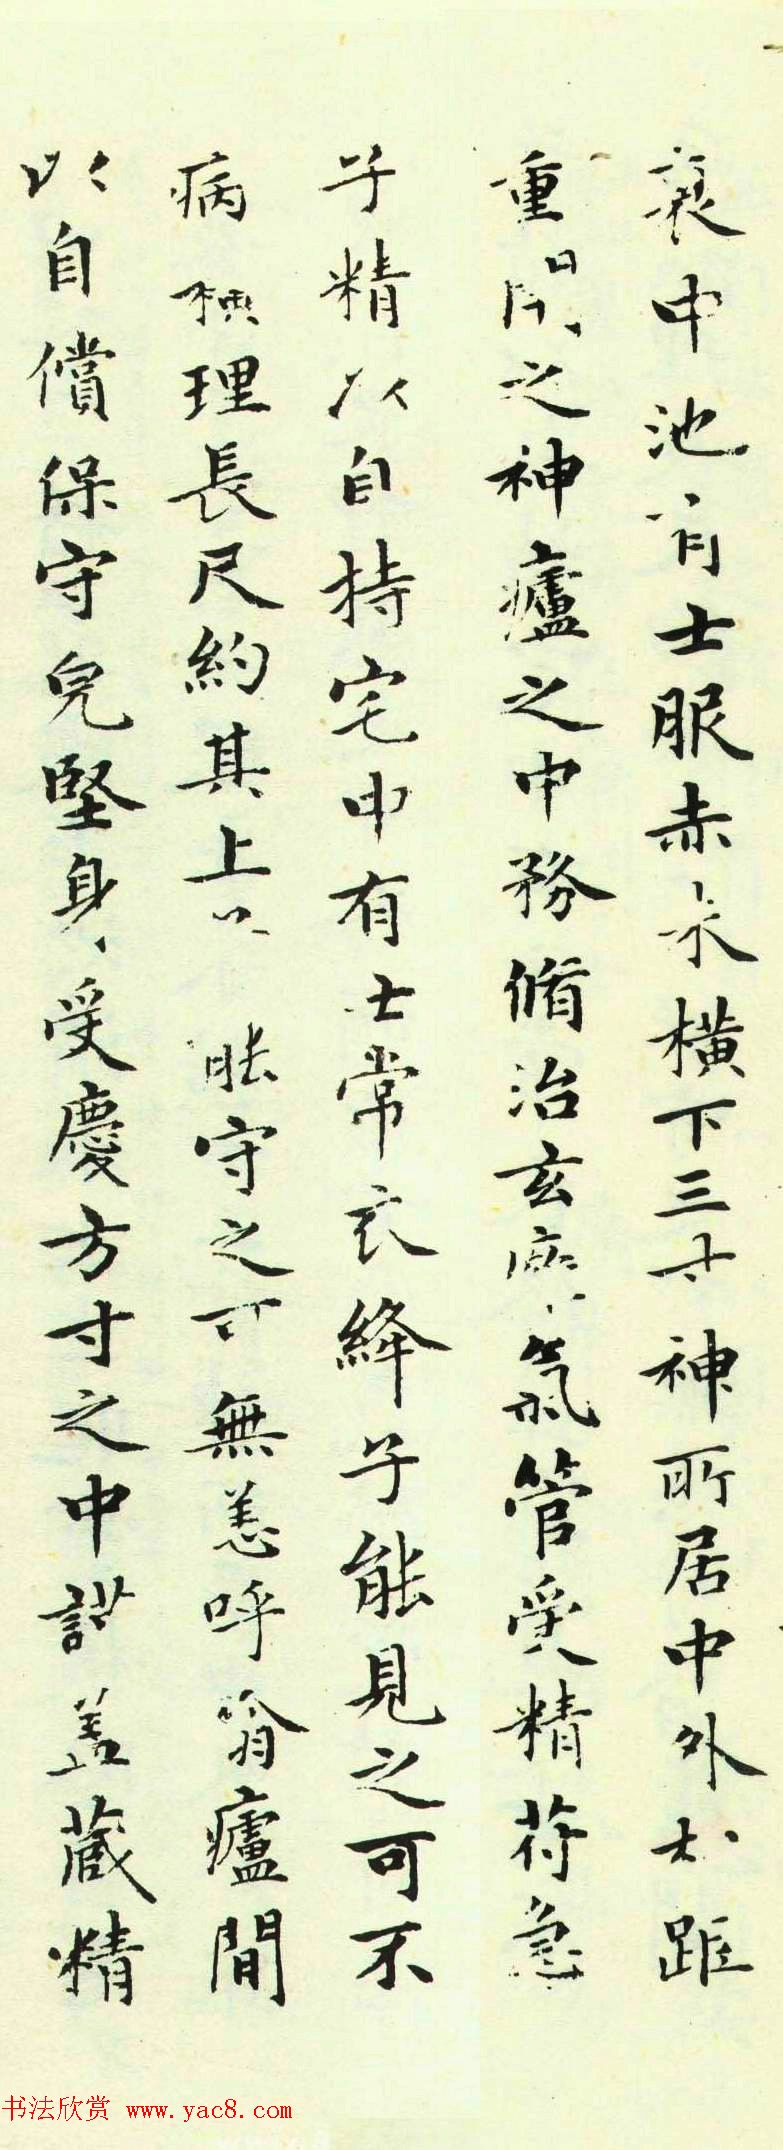 衰中池有士服赤衣橫下三寸神所居中外相距
重閉之神廬之中務脩治玄廱氣管受精苻急
子精以自持宅中有士常衣絳子能見之可不
病橫理長尺約其上 能守之可無恙呼噏廬間
以自償保守皃堅身受慶方寸之中謹盖蔵精
书法欣赏 www.yac8.com